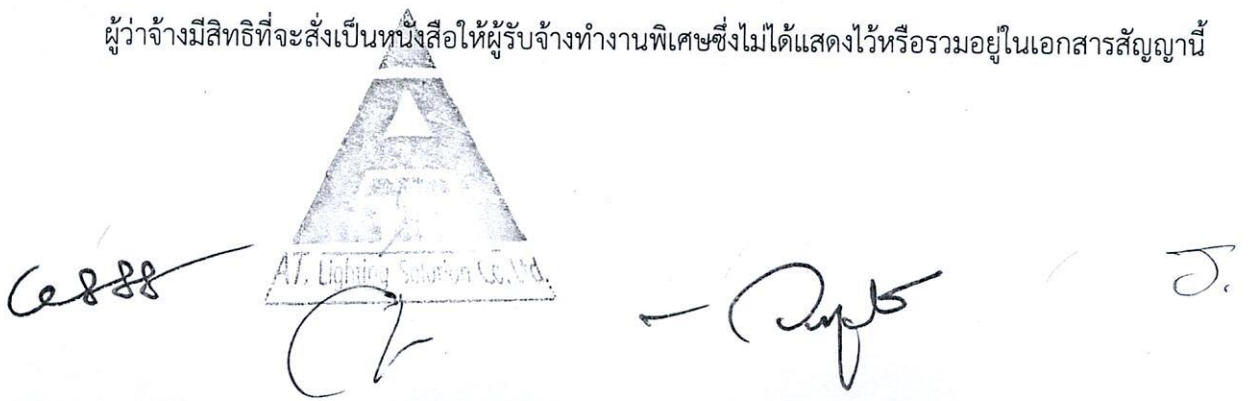 ผู้ว่าจ้างมีสิทธิที่จะสั่งเป็นหนังสือให้ผู้รับจ้างทำงานพิเศษซึ่งไม่ได้แสดงไว้หรือรวมอยู่ในเอกสารสัญญานี้
AT. Lighting Solution Co.,Ltd.